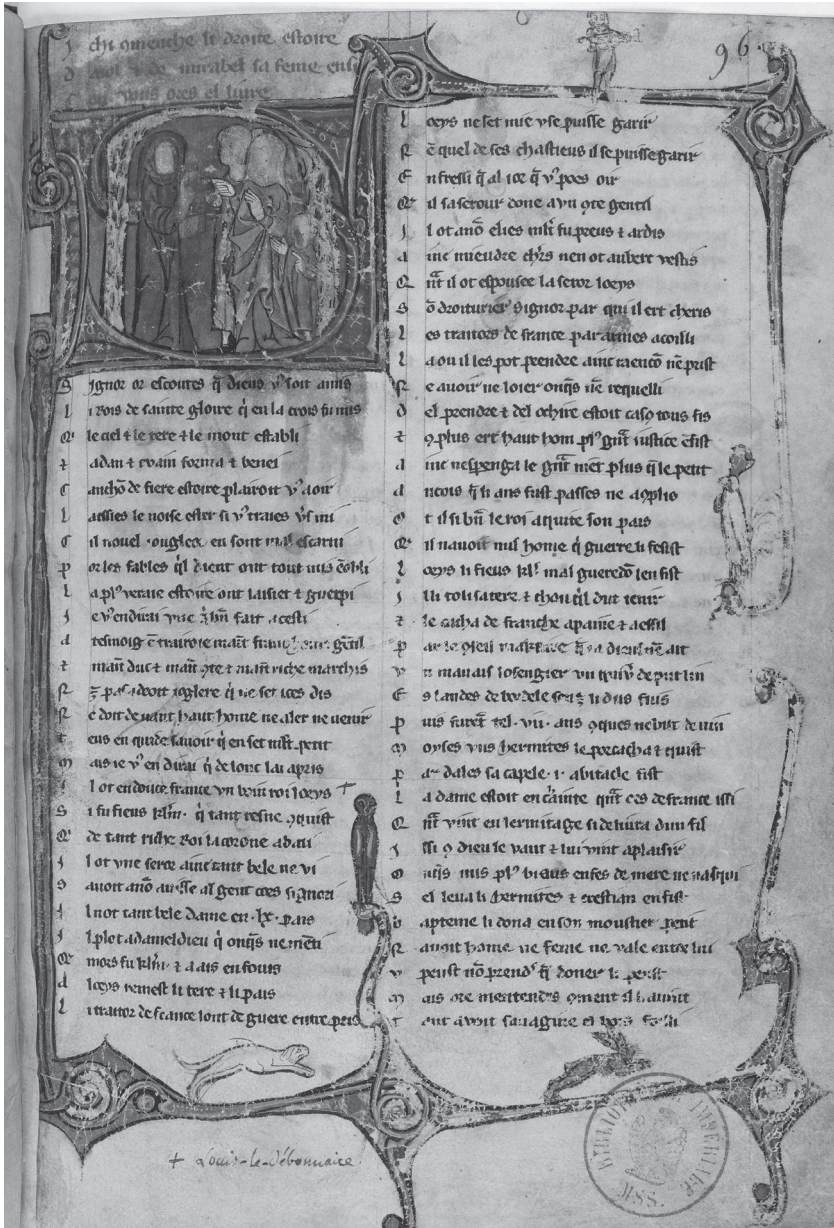 chi 9menche li droite estoire
de mirabel sa feme ensi
vous ores el liure
96
S ignor or escoutes q̃ dieus v9 soit amis
L i rois de sainte gloire q̇ en la crois fu mis
Q' le ciel & le tere & le mont establi
& adan & euain forma & benei
C anchõ de fiere estoire plairoit v9 a oir
L aissies le noise ester si v9 traies v̾s mi
C il nouel iougleor en sont mal escarni
P or les fables q̇l dient ont tout mis
L a pl9 veraie estoire ont laisiet & guerpi
J e v9 en dirai vne
A tesmoig trairoie maint
& maint duc & maint 9te & maint riche marchis
N pas a droit ioglere q̇ ne set ices dis
N e doit deuant haut home ne aler ne uenir
T eus en quide sauoir q̇ en set petit
M ais ie v9 en dirai q̇ de lonc lai apris
J l ot en douce france vn boin roi loeys +
S i fu fieus klm̃. q̇ tant resne 9quist
Q' de tant riche roi la corone abati
J l ot vne seror ainc tant bele ne vi
S auoit anõ
J l not tant bele dame en .lx. pais
J l plot a dameldieu q̇ onq̃s ne menti
Q' mors fu klm̃. & a ais enfouis
A loeys remest li tere & li pais
L i traitor de france lont de guere entrepris
L oeys ne set mie v se puisse garir
N e quel de ses chastieus il se puisse garir
E nfressi q̃ al ior q̃ v9 poes oir
Q' il sa serour done a vn 9te gentil
J l ot anõ elies preus & ardis
A inc mieudre ch'rs nen ot auberc vestis
Q nt̃ il ot espousee la seror loeys
S õ droiturier signor par qui il ert cheris
L es traitors de france par armes acoilli
L a ou il les pot prendre ainc raencõ nẽ prist
N e auoir ne loier onq̃s nẽ requelli
D el prendre & del ochire estoit caso tous fis
& 9 plus ert haut hom pl9 grãt iustice ẽ fist
A inc nespergna le grãt nient plus q̃ le petit
A ncois q̃ li ans fust passes ne acõplis
O t il si bñ le roi aquite son pais
Q' il nauoit nul home q̇ guerre li fesist
L oeys li fieus kl'. mal gueredõ len fist
J l li toli sa tere & chou q̇l dut tenir
& le cacha de franche a paine & a essil
P ar le
V n mauais losengier vn de put lin
E s landes de bordele
P uis furent tel .vii. ans 9ques ne but de vin
M oyses vns hermites le porcacha & quist
P ar dales sa capele .i. abitacle fist
L a dame estoit encainte quãt ces de france issi
Q nt̃ vint en lermitage si deliura dun fil
J ssi 9 dieu le vaut & lui vint a plaisir
O nq̃s mis pl9 biaus enfes de mere ne nasqui
S el leua li hermites & crestian en fist
B apteme li dona en son moustier petit
N auoit home ne feme ne vale entor lui
V peust nõ prend' q̃ doner li
M ais ore mentendes 9ment il li auint
T ant auoit
+ Louis-le-débonnaire.
BIBLIOTHÈQUE IMPÉRIALE
MSS.